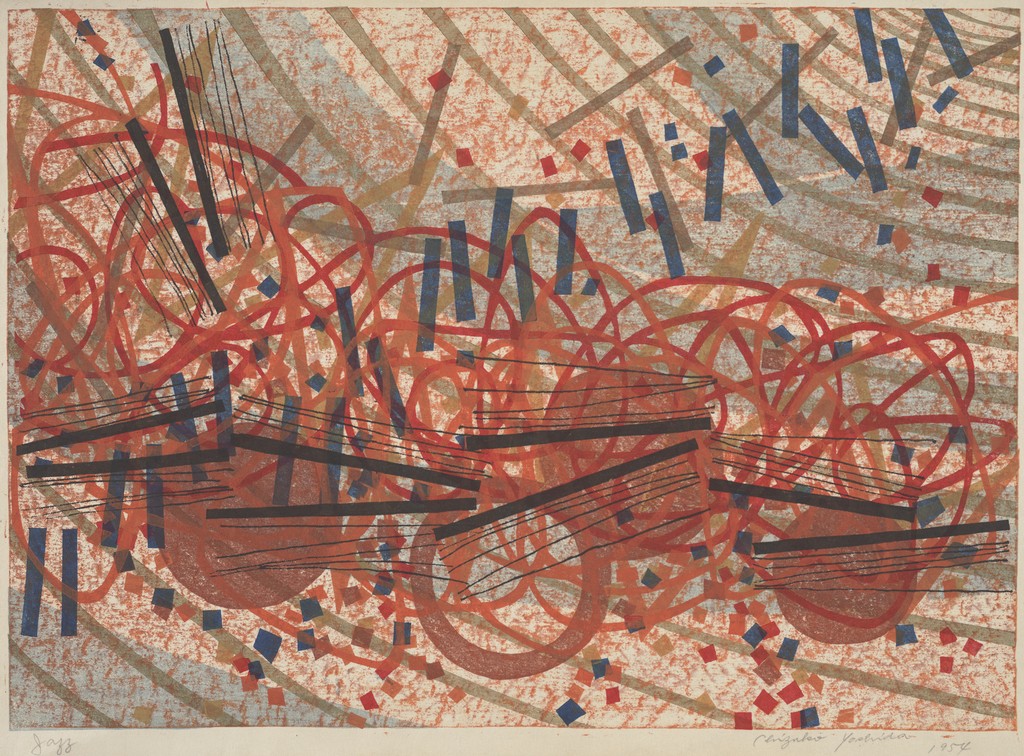 Jazz
Chizuko Yoshida 1954